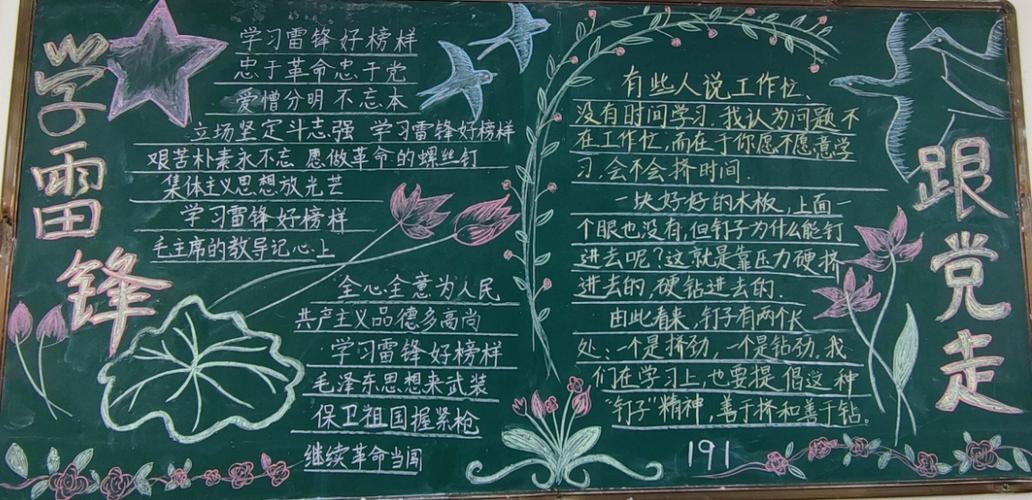 学雷锋
学习雷锋好榜样
忠于革命忠于党
爱憎分明不忘本
立场坚定斗志强 学习雷锋好榜样
艰苦朴素永不忘 愿做革命的螺丝钉
集体主义思想放光芒
学习雷锋好榜样
毛主席的教导记心上
全心全意为人民
共产主义品德多高尚
学习雷锋好榜样
毛泽东思想来武装
保卫祖国握紧枪
继续革命当闯
有些人说工作忙、
没有时间学习.我认为问题不
在工作忙,而在于你愿不愿意学
习.会不会挤时间.
一块好好的木板,上面一
个眼也没有,但钉子为什么能钉
进去呢?这就是靠压力硬挤
进去的,硬钻进去的.
由此看来,钉子有两个长
处:一个是挤劲,一个是钻劲.我
们在学习上,也要提倡这种
"钉子"精神,善于挤和善于钻。
191
跟党走